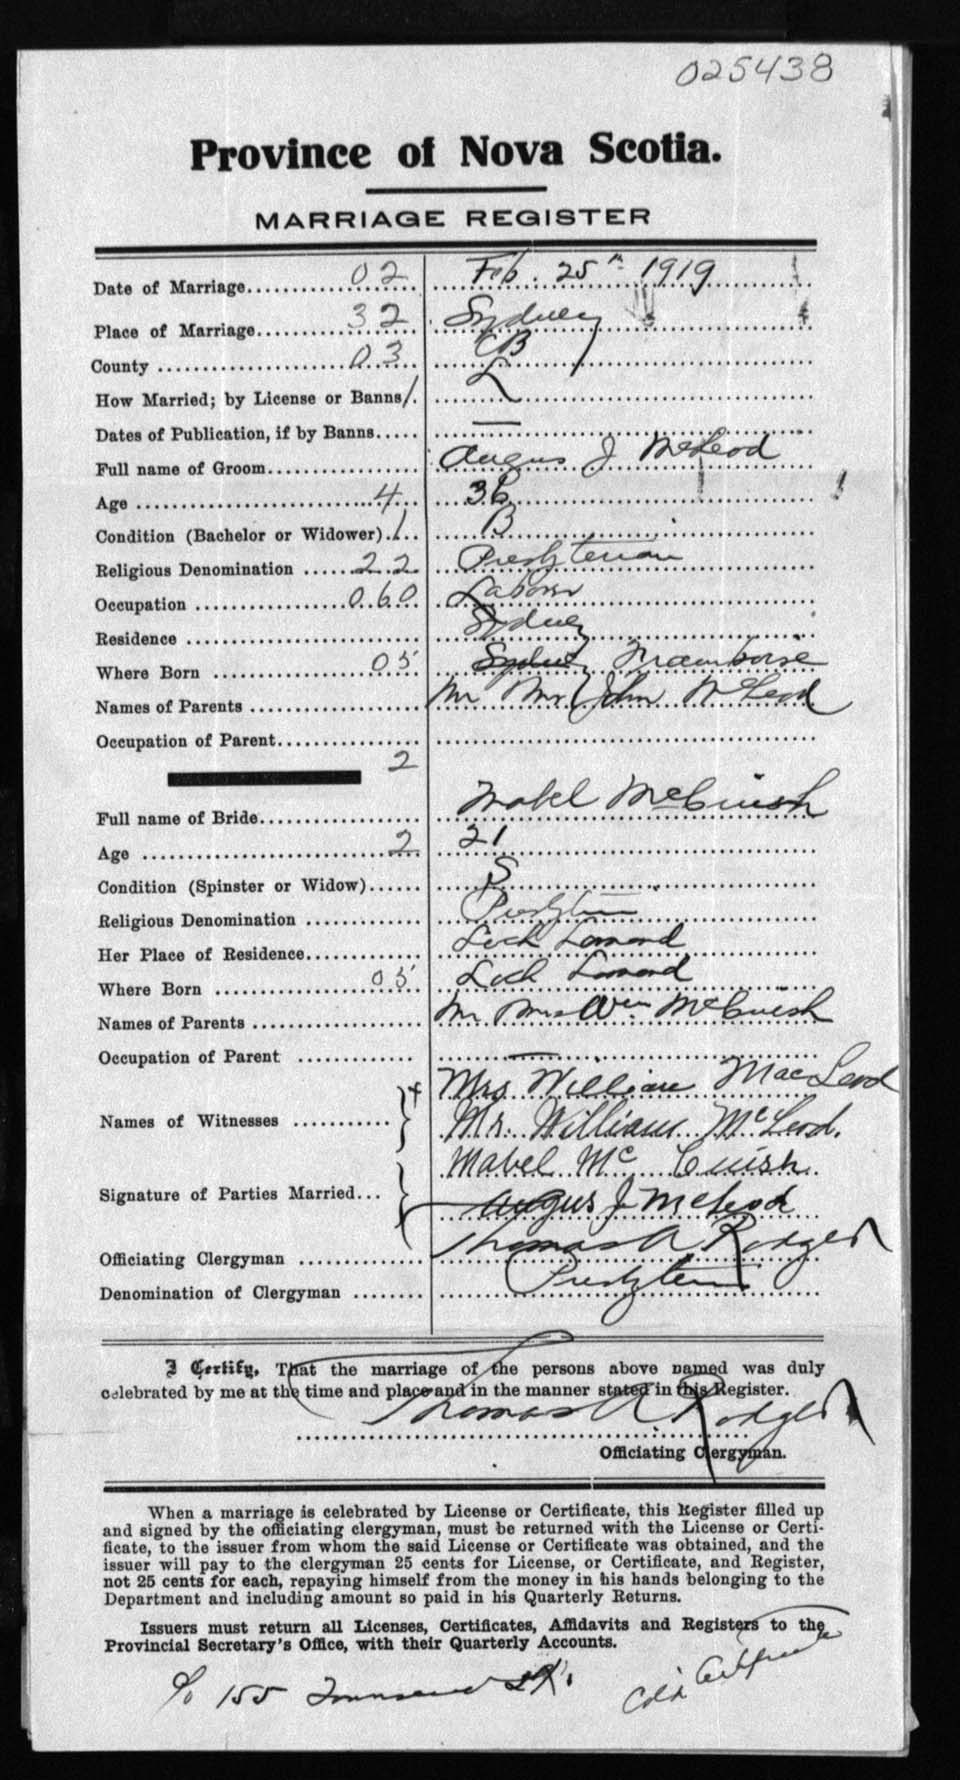 025438
Province of Nova Scotia.
MARRIAGE REGISTER
Date of Marriage 02 Feb. 25th 1919
Place of Marriage 32 Sydney
County 03 CB
How Married; by License or Banns 1 L
Dates of Publication, if by Banns —
Full name of Groom Angus J McLeod
Age 4 36
Condition (Bachelor or Widower) 1 B
Religious Denomination 22 Presbyterian
Occupation 060 Laborer
Residence Sydney
Where Born 05 Sydney Framboise
Names of Parents Mr Mrs John McLeod
Occupation of Parent
2
Full name of Bride Mabel McCuish
Age 2 21
Condition (Spinster or Widow) S
Religious Denomination Presbyterian
Her Place of Residence Loch Lomond
Where Born 05 Loch Lomond
Names of Parents Mr Mrs Wm McCuish
Occupation of Parent —
Mrs William MacLeod
Names of Witnesses Mr. William McLeod.
Mabel McCuish
Signature of Parties Married Angus J McLeod
Officiating Clergyman Thomas A Rodger
Denomination of Clergyman Presbyterian
I Certify, That the marriage of the persons above named was duly
celebrated by me at the time and place and in the manner stated in this Register.
Thomas A Rodger
Officiating Clergyman.
When a marriage is celebrated by License or Certificate, this Register filled up
and signed by the officiating clergyman, must be returned with the License or Certi-
ficate, to the issuer from whom the said License or Certificate was obtained, and the
issuer will pay to the clergyman 25 cents for License, or Certificate, and Register,
not 25 cents for each, repaying himself from the money in his hands belonging to the
Department and including amount so paid in his Quarterly Returns.
Issuers must return all Licenses, Certificates, Affidavits and Registers to the
Provincial Secretary's Office, with their Quarterly Accounts.
c/o 155 Townsend St.